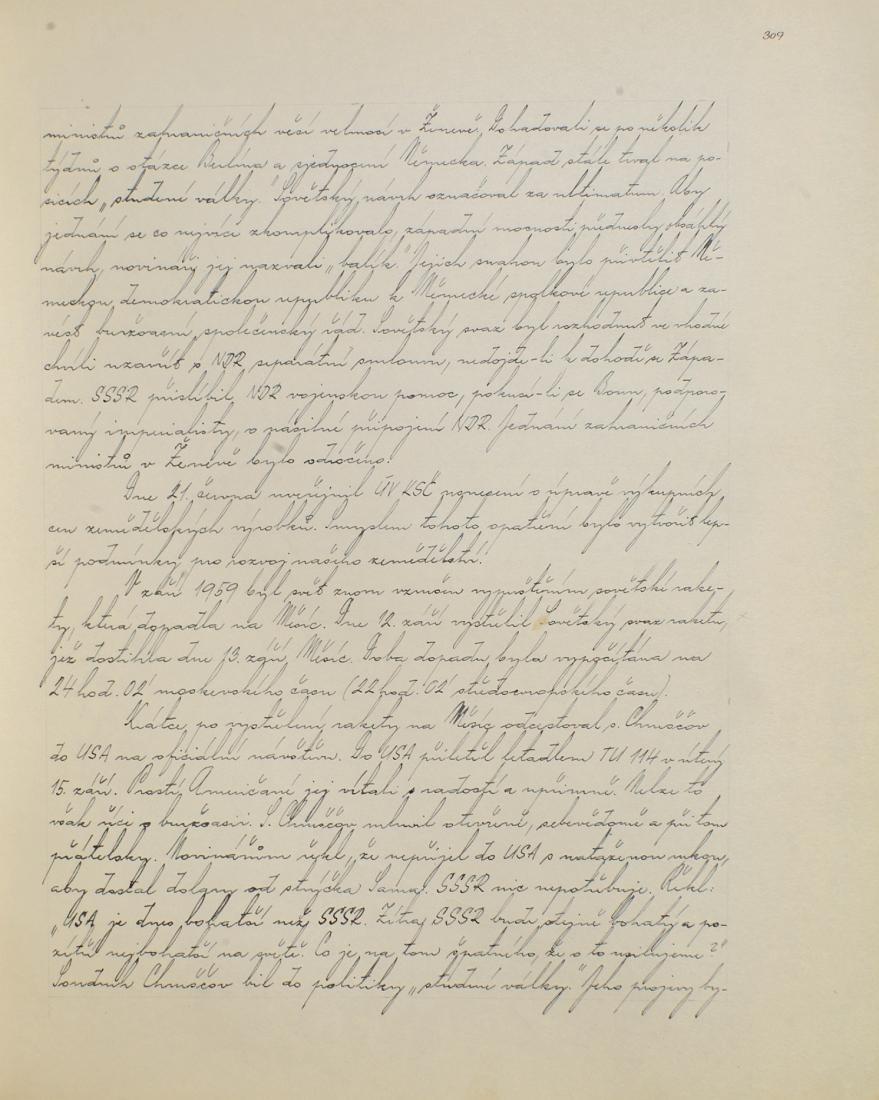 309
ministrů zahraničních věcí velmocí v Ženevě. Dohadovali se po několik
týdnů o otázce Berlína a sjednocení Německa. Západ stále trval na po-
sicích „studené války." Sovětský návrh označoval za ultimatum. Aby
jednání se co nejvíce zkomplikovalo, západní mocnosti přednesly obsáhlý
návrh, novináři jej nazvali „balík." Jejich snahou bylo přivtělit Ně-
meckou demokratickou republiku k Německé spolkové republice a za-
vést buržoasní společenský řád. Sovětský svaz byl rozhodnut ve vhodné
chvíli uzavřít s NDR separátní smlouvu, nedojde-li k dohodě se Zápa-
dem. SSSR přislíbil NDR vojenskou pomoc, pokusí-li se Bonn, podporo-
vaný imperialisty, o násilné připojení NDR. Jednání zahraničních
ministrů v Ženevě bylo odročeno.
Dne 21. června uveřejnil ÚV KSČ usnesení o úpravě výkupních
cen zemědělských výrobků. Smyslem tohoto opatření bylo vytvořit lep-
ší podmínky pro rozvoj našeho zemědělství.
V září 1959 byl svět znovu vzrušen vypuštěním sovětské rake-
ty, která dopadla na Měsíc. Dne 12. září vystřelil Sovětský svaz raketu,
jež dostihla dne 13. září Měsíc. Doba dopadu byla vypočítána na
24 hod. 02' moskevského času (22 hod. 02' středoevropského času).
Krátce po vystřelení rakety na Měsíc odcestoval s. Chruščov
do USA na oficiální návštěvu. Do USA přiletěl letadlem TU 114 v úterý
15. září. Prostí Američané jej vítali s radostí a upřímně. Nelze to
však říci o buržoasii. S. Chruščov mluvil otevřeně, sebevědomě a při tom
přátelsky. Novinářům řekl, že nepřijel do USA s nataženou rukou,
aby dostal dolary od strýčka Sama. SSSR nic nepotřebuje. Řekl:
„USA je dnes bohatší než SSSR. Zítra SSSR bude stejně bohatý a po-
zítří nejbohatší na světě. Co je na tom špatného, že o to usilujeme?"
Soudruh Chruščov bil do politiky „studené války." Jeho projevy by-